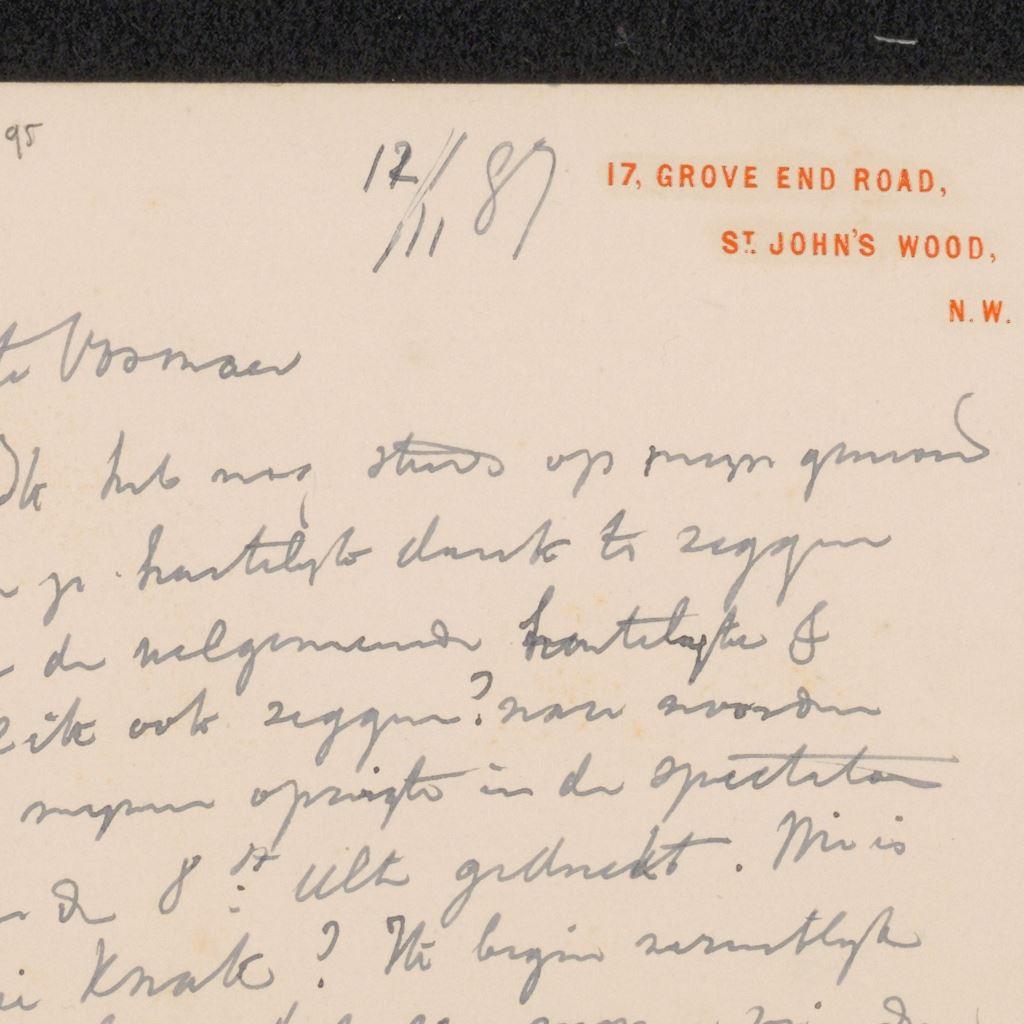 95
12/11 87
17, GROVE END ROAD,
ST. JOHN'S WOOD,
N.W.
Vosmaer
Ik heb nog steeds op mijn gemoed
je hartelijk dank te zeggen
de welgemeende hartelijke &
ik ook zeggen? ware woorden
mijnen opzigte in de spectator
de 8st Ult gedrukt. Wie is
Knak? Ik begin